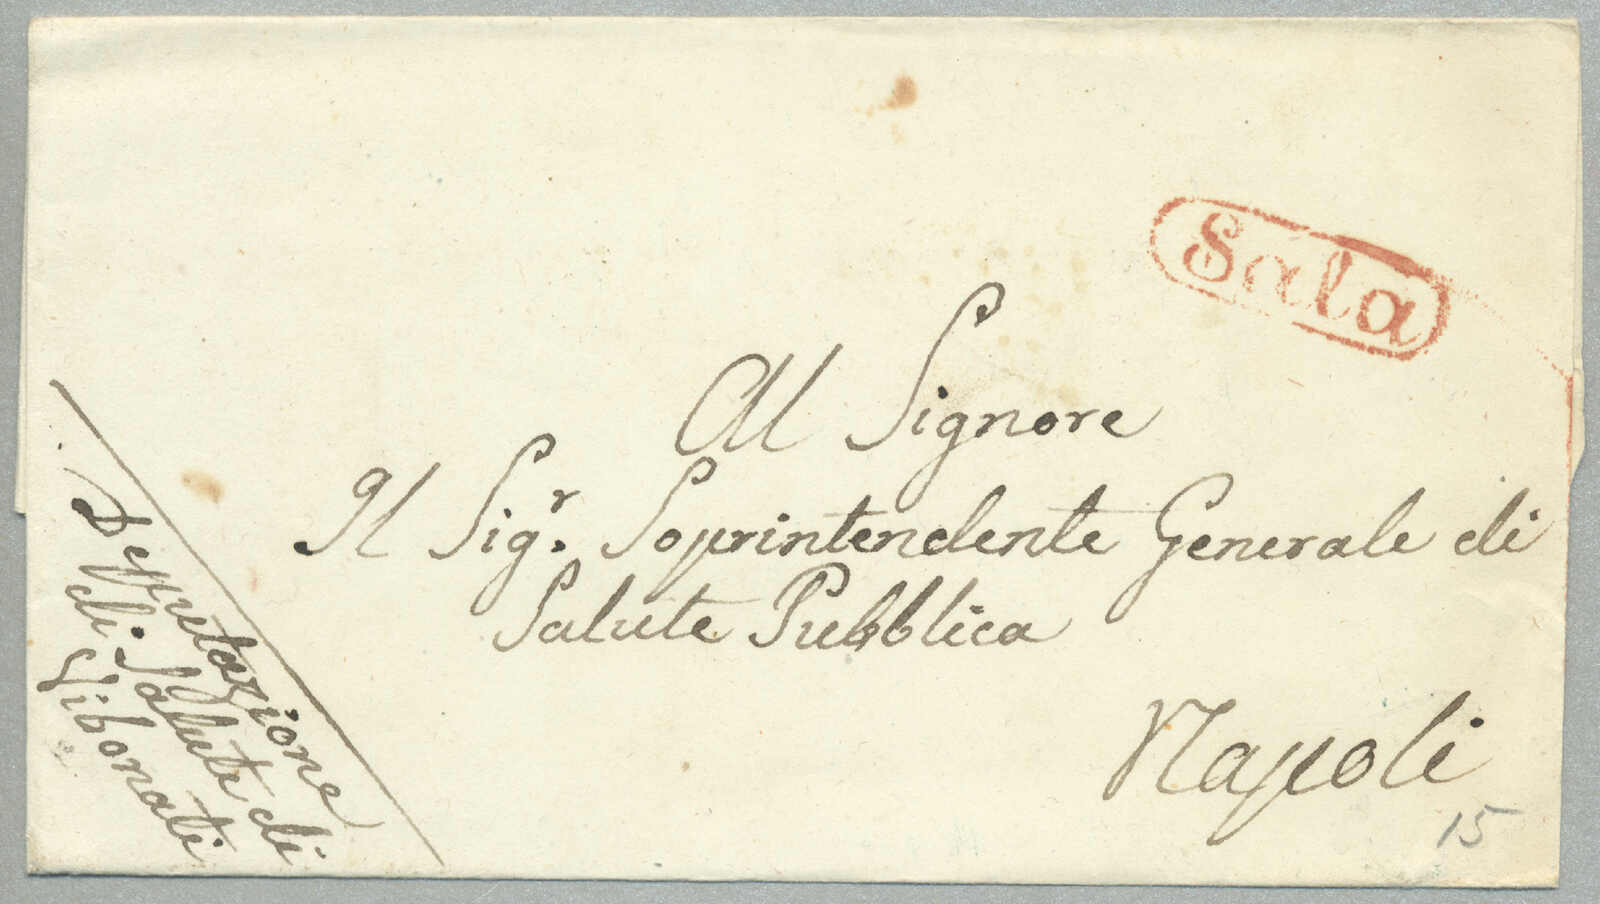 Sala
Al Signore
Il Sig.r Soprintendente Generale di
Salute Pubblica
Napoli
15
Deputazione
di Salute di
Vibonati